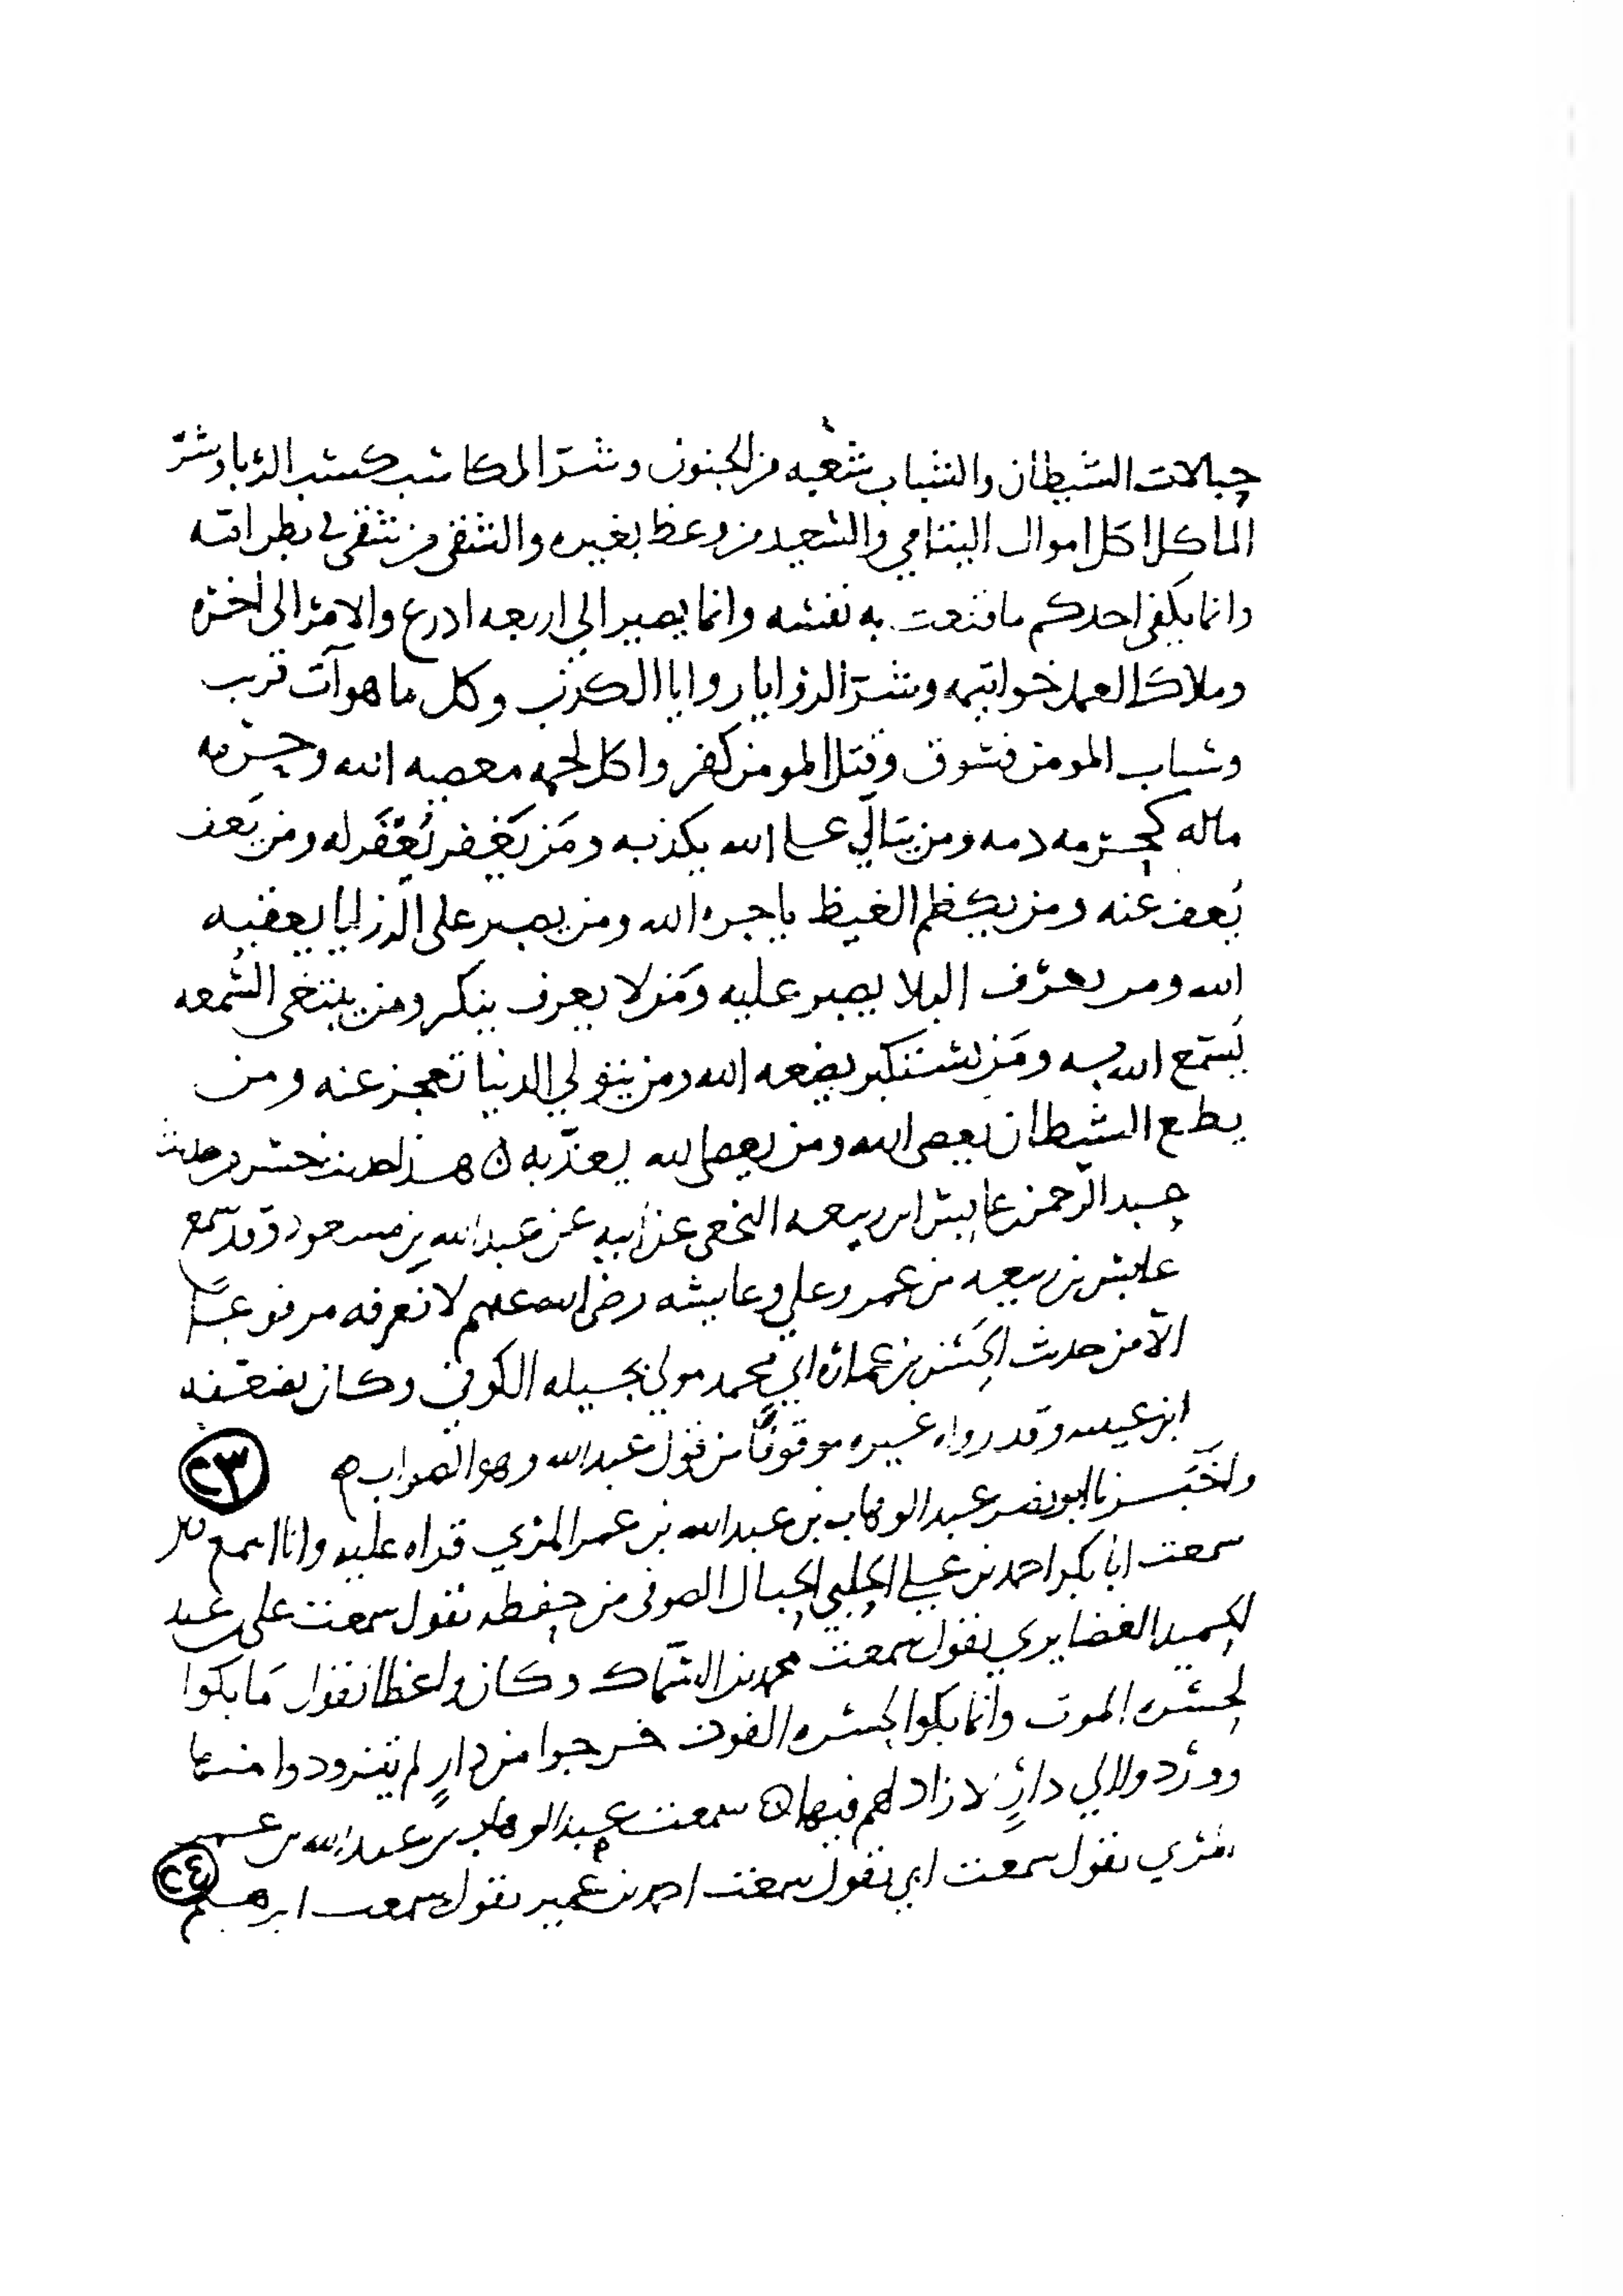 حبالات الشيطان والشباب شعبه من الجنون وشر المكاسب كسب الربا وشر
الماكل اكل اموال اليتامي والسعيد من وعظ بغيره والشقي من شقي في بطن امه
وانما يكفي احدكم ما قنعت به نفسه وانما يصير الي اربعه اذرع والامر الى اخره
وملاك العمل خواتيمه وشر الروايا روايا الكذب وكل ما هو آت قريب
وسباب المومن فسوق وقتل المومن كفر واكل لحمه معصيه الله وحرمه
ماله كحرمه دمه ومن يتالي على الله يكذبه ومن يَغفر يُغفَر له ومن يَعف
يُعف عنه ومن يكظم الغيظ ياجره الله ومن يصبر على الرزايا يعقبه
الله ومن يعرف البلا يصبر عليه ومَن لا يعرف ينكر ومن يبتغى السُمعه
يُسمع الله به ومَن يستكبر يضعه الله ومن يتولي الدنيا تعجز عنه ومن
يطع الشيطان يعص الله ومن يعص الله يعذبه ن هذا حديث حسن من حديث
عبد الرحمن عابس ابن ربيعه النخعي عن ابيه عن عبد الله بن مسعود وقد سمع
عابس بن ربيعه من عمر وعلي وعايشه رضى الله عنهم لا نعرفه مرفوعًا
الّا من حديث الحسن بن عماره ابي محمد مولي بجيله الكوفي وكان يضعّفه
ابن عيينه وقد رواه غيره موقوفًا من قول عبد الله وهو الصواب ه
٢٣
واخبَرنا ابو نصر عبد الوهاب بن عبد الله بن عمر المري قراه عليه وانا اسمع
سمعت ابا بكر احمد بن علي الحلبي الحبال الصوفى من حفظه يقول سمعت على عبد
الحميد الغضايري يقول سمعت محمد بن السماك وكان واعظا يقول مَا بكوا
لحسره الموت وانما بكوا لحسره الفوت خرجوا من دارٍ لم يتزودوا منها
ووردوا الي دارٍ لا زاد لهم فيها ه سمعت عبد الوهاب بن عبد الله بن عمر
المري يقول سمعت ابي يقول سمعت احمد بن عمير يقول سمعت ابرهيم
٢٤